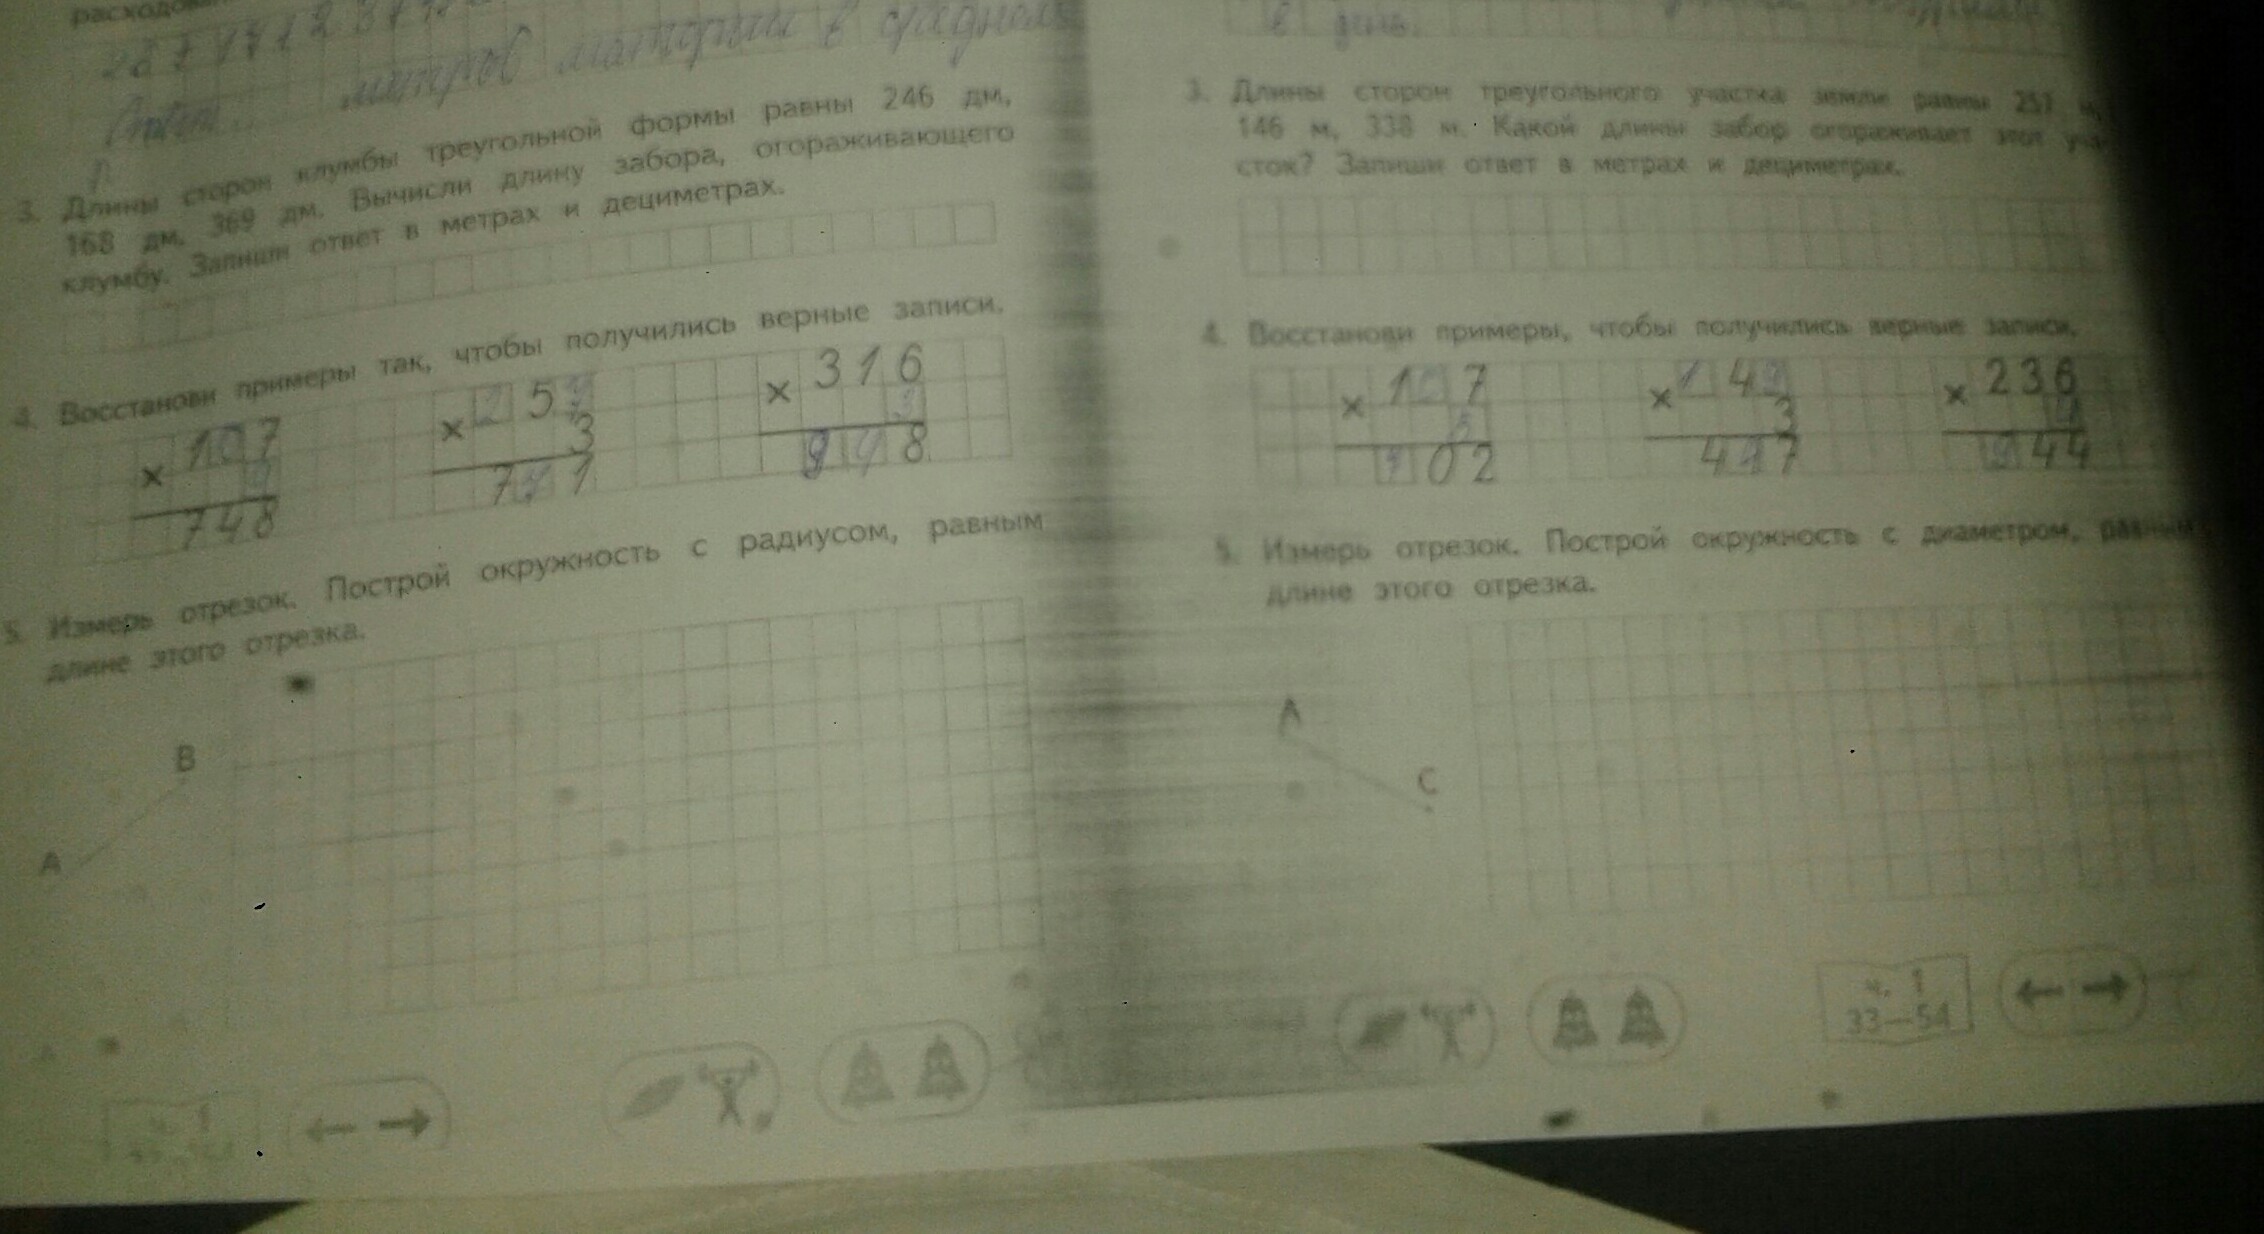 метров материи в среднем
3. Длины сторон клумбы треугольной формы равны 246 дм,
168 дм, 369 дм. Вычисли длину забора, огораживающего
клумбу. Запиши ответ в метрах и дециметрах.
4. Восстанови примеры так, чтобы получились верные записи.
× 107 × 25 × 316
3
748 7 1 9 8
5. Измерь отрезок. Построй окружность с радиусом, равным
длине этого отрезка.
B
A
в день.
3. Длины сторон треугольного участка земли равны 257 м,
146 м, 338 м. Какой длины забор огораживает этот уча
сток? Запиши ответ в метрах и дециметрах.
4. Восстанови примеры, чтобы получились верные записи.
× 1 7 × 14 × 236
3
02 4 7 44
5. Измерь отрезок. Построй окружность с диаметром, равным
длине этого отрезка.
A
C
ч. 1
33—54